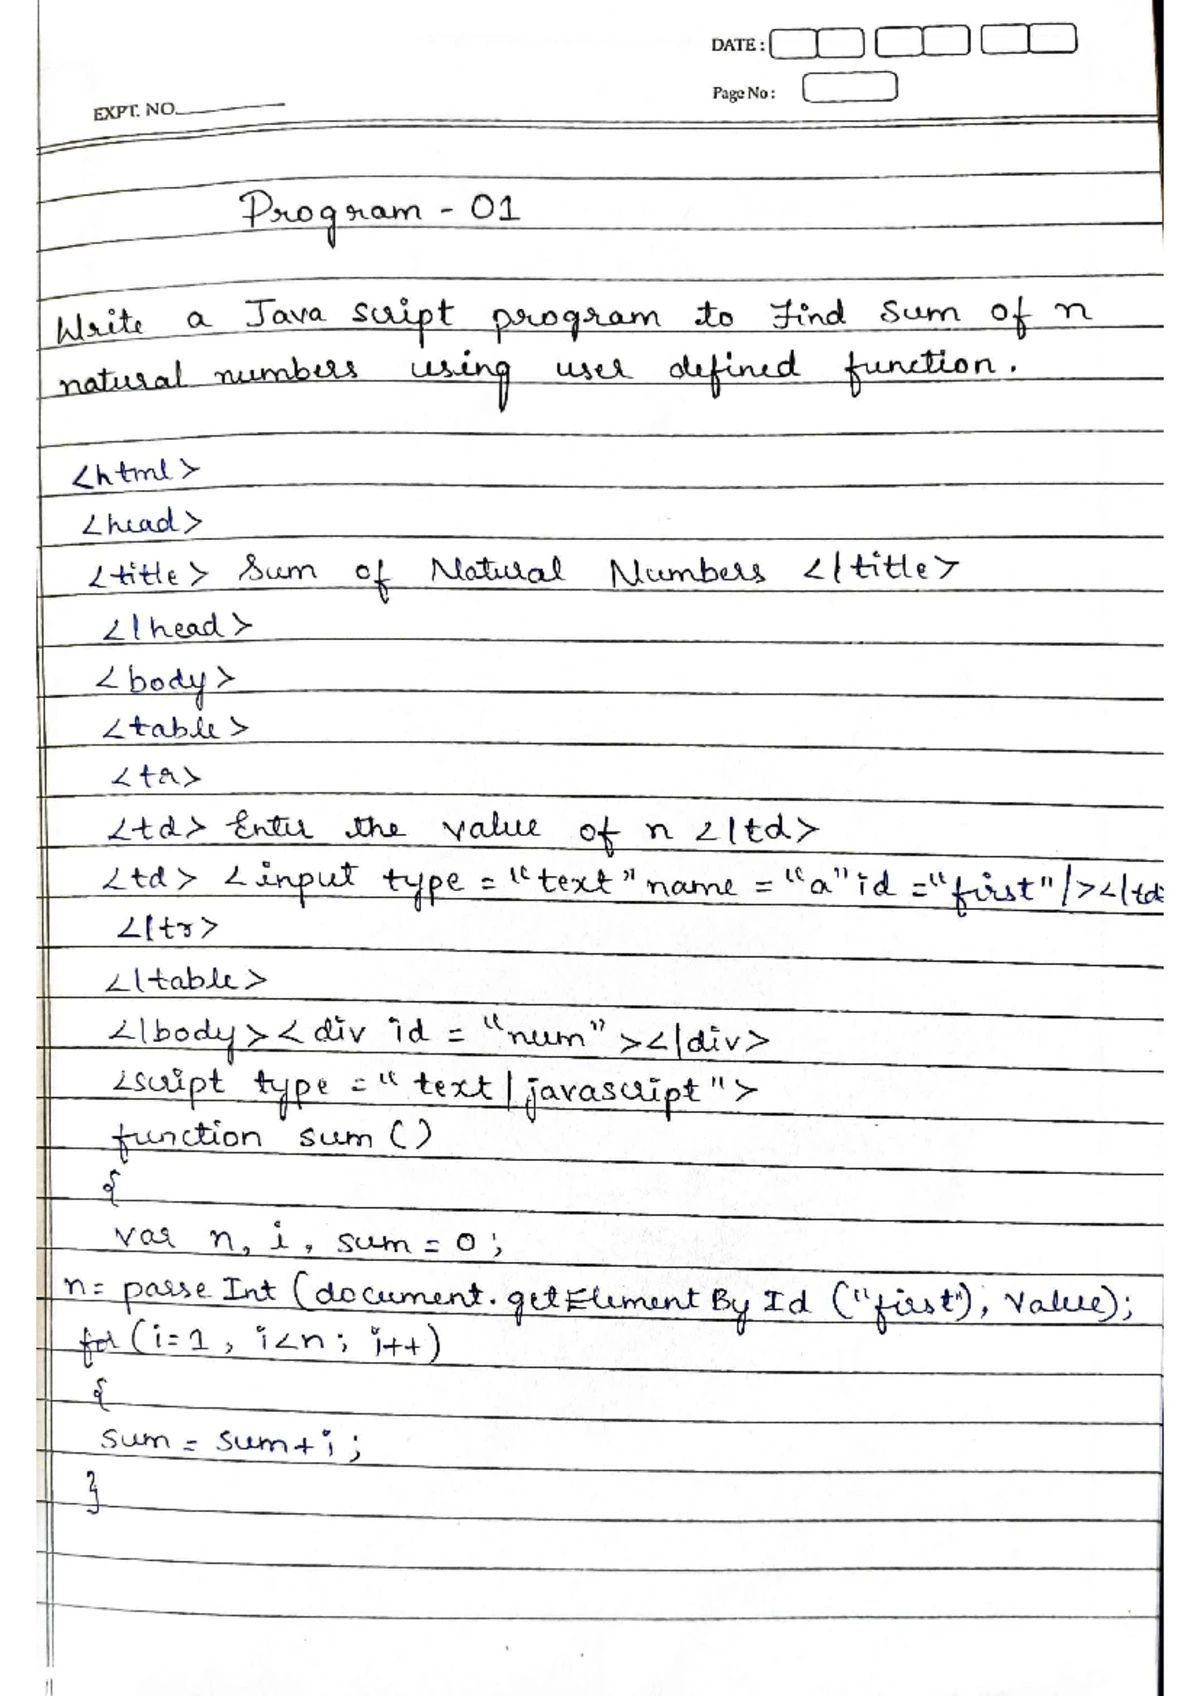 DATE :
Page No :
EXPT. NO.
Program - 01
Write a Java script program to find Sum of n
natural numbers using user defined function.
<html>
<head>
<title> Sum of Natural Numbers </title>
</head>
<body>
<table>
<tr>
<td> Enter the value of n </td>
<td> <input type = "text" name = "a" id = "first" /></td
</tr>
</table>
</body> <div id = "num" ></div>
<script type = "text/javascript">
function sum ()
{
var n, i, sum = 0;
n = parse Int (document.getElement By Id ("first"), value);
for (i=1, i<n; i++)
{
sum = sum+i;
}